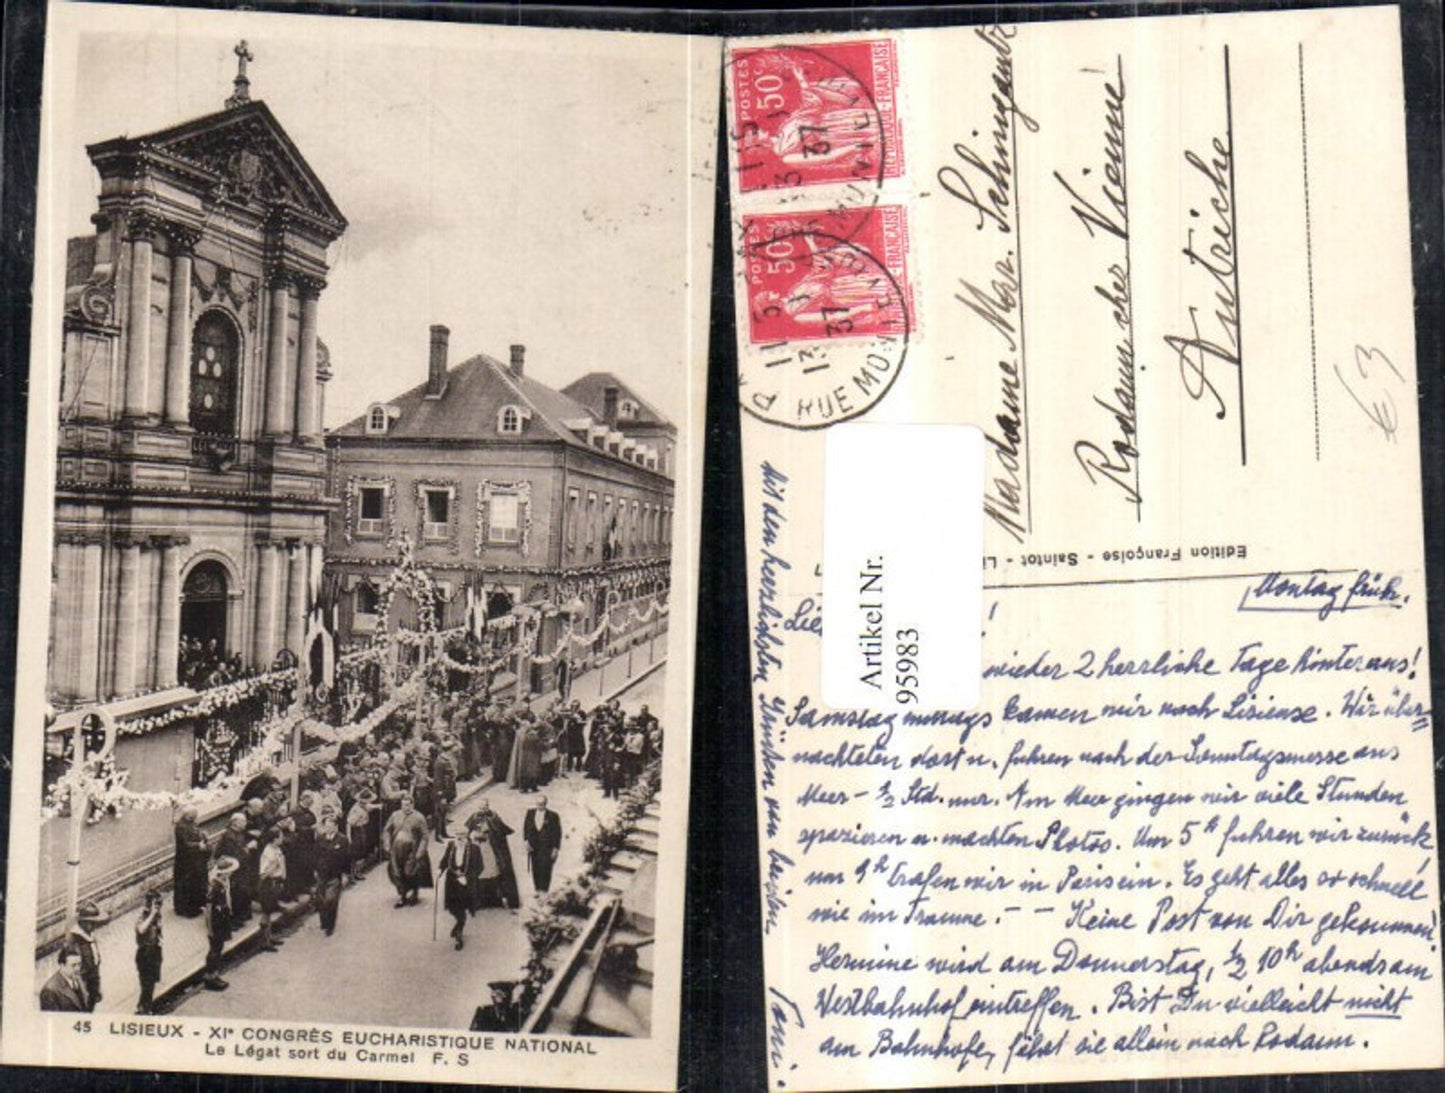 45 LISIEUX - XIe CONGRÈS EUCHARISTIQUE NATIONAL
Le Légat sort du Carmel F. S
POSTES
50c
REPUBLIQUE-FRANÇAISE
POSTES
50c
-FRANÇAISE
13
37
RUE MO
13
37
Madame Mar.
Rodaun chez Vienne
Autriche
€ 3
Edition Françoise - Saintot - Li
Artikel Nr.
95983
Montag früh.
Lie !
wieder 2 herrliche Tage hinter uns!
Samstag mittags kamen wir nach Lisieuse. Wir über=
nachteten dort u. fuhren nach der Sonntagsmesse ans
Meer - ½ Std. nur. Am Meer gingen wir viele Stunden
spazieren u. machten Photos. Um 5h fuhren wir zurück
um 9h trafen wir in Paris ein. Es geht alles so schnell
wie im Traume. - - Keine Post von Dir gekommen!
Hermine wird am Donnerstag, ½ 10h abends am
Westbahnhof eintreffen. Bist Du vielleicht nicht
am Bahnhofe, fährt sie allein nach Rodaun.
Mit den herzlichsten Grüßen von beiden